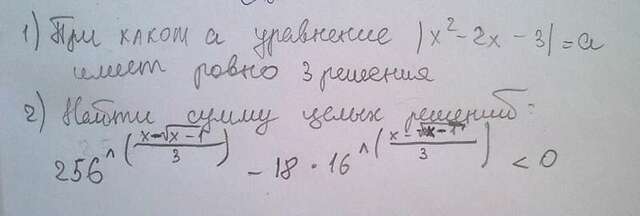 1) При каком a уравнение |x²-2x-3|=a
имеет ровно 3 решения
2) Найти сумму целых решений:
256^((x-√(x-1))/3) - 18·16^((x-√(x-1))/3) < 0